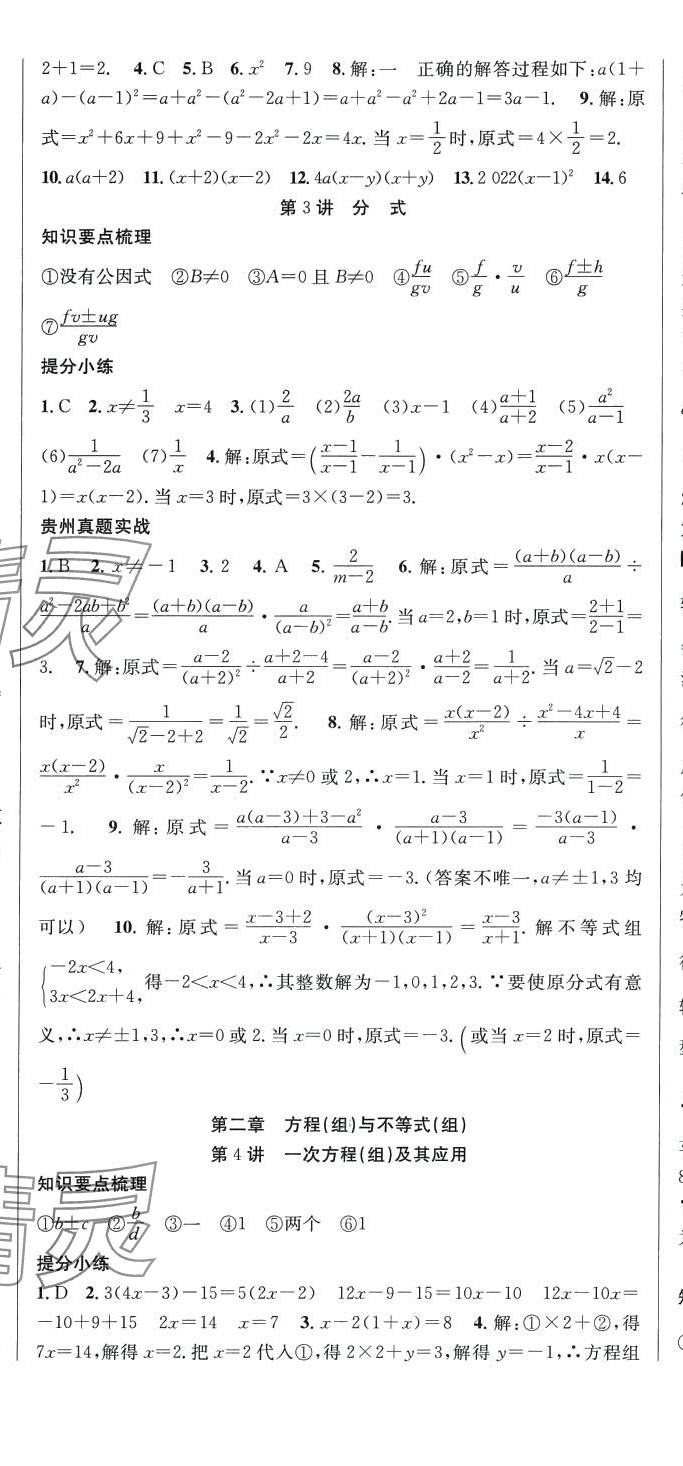 2+1=2. 4.C 5.B 6.x² 7.9 8.解:一 正确的解答过程如下:a(1+
a)-(a-1)²=a+a²-(a²-2a+1)=a+a²-a²+2a-1=3a-1. 9.解:原
式=x²+6x+9+x²-9-2x²-2x=4x.当 x=1/2时,原式=4×1/2=2.
10.a(a+2) 11.(x+2)(x-2) 12.4a(x-y)(x+y) 13.2 022(x-1)² 14.6
第 3 讲 分 式
知识要点梳理
①没有公因式 ②B≠0 ③A=0 且 B≠0 ④fu/gv ⑤f/g·v/u ⑥(f±h)/g
⑦(fv±ug)/gv
提分小练
1.C 2.x≠1/3 x=4 3.(1)2/a (2)2a/b (3)x-1 (4)(a+1)/(a+2) (5)a²/(a-1)
(6)1/(a²-2a) (7)1/x 4.解:原式=((x-1)/(x-1)-1/(x-1))·(x²-x)=(x-2)/(x-1)·x(x-
1)=x(x-2).当 x=3 时,原式=3×(3-2)=3.
贵州真题实战
1.B 2.x≠-1 3.2 4.A 5.2/(m-2) 6.解:原式=(a+b)(a-b)/a÷
(a²-2ab+b²)/a=(a+b)(a-b)/a·a/(a-b)²=(a+b)/(a-b).当 a=2,b=1 时,原式=(2+1)/(2-1)=
3. 7.解:原式=(a-2)/(a+2)²÷(a+2-4)/(a+2)=(a-2)/(a+2)²·(a+2)/(a-2)=1/(a+2).当 a=√2-2
时,原式=1/(√2-2+2)=1/√2=√2/2. 8.解:原式=x(x-2)/x²÷(x²-4x+4)/x=
x(x-2)/x²·x/(x-2)²=1/(x-2).∵x≠0 或 2,∴x=1.当 x=1 时,原式=1/(1-2)=
-1. 9.解:原式=(a(a-3)+3-a²)/(a-3)·(a-3)/((a+1)(a-1))=-3(a-1)/(a-3)·
(a-3)/((a+1)(a-1))=-3/(a+1).当 a=0 时,原式=-3.(答案不唯一,a≠±1,3 均
可以) 10.解:原式=(x-3+2)/(x-3)·(x-3)²/((x+1)(x-1))=(x-3)/(x+1).解不等式组
{-2x<4,
3x<2x+4,得-2<x<4,∴其整数解为-1,0,1,2,3.∵要使原分式有意
义,∴x≠±1,3,∴x=0 或 2.当 x=0 时,原式=-3.(或当 x=2 时,原式=
-1/3)
第二章 方程(组)与不等式(组)
第 4 讲 一次方程(组)及其应用
知识要点梳理
①b±c ②b/d ③一 ④1 ⑤两个 ⑥1
提分小练
1.D 2.3(4x-3)-15=5(2x-2) 12x-9-15=10x-10 12x-10x=
-10+9+15 2x=14 x=7 3.x-2(1+x)=8 4.解:①×2+②,得
7x=14,解得 x=2.把 x=2 代入①,得 2×2+y=3,解得 y=-1,∴方程组
精灵
精灵